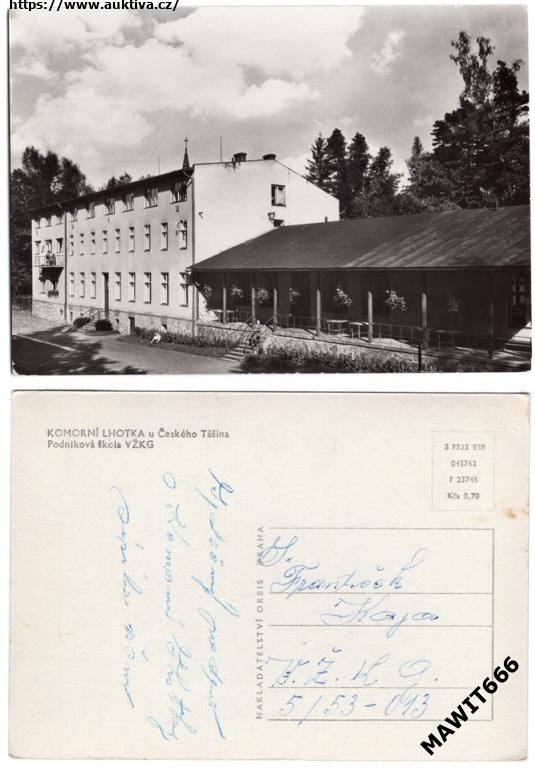 https://www.auktiva.cz/
KOMORNÍ LHOTKA u Českého Těšína
Podniková škola VŽKG
3 7523 958
045762
F 23746
Kčs 0,70
Srdečný pozdrav
z Komorní Lhotky
NAKLADATELSTVÍ ORBIS PRAHA
S.
František
Kaja
V.Ž.K.G.
5/53-013
MAWIT666